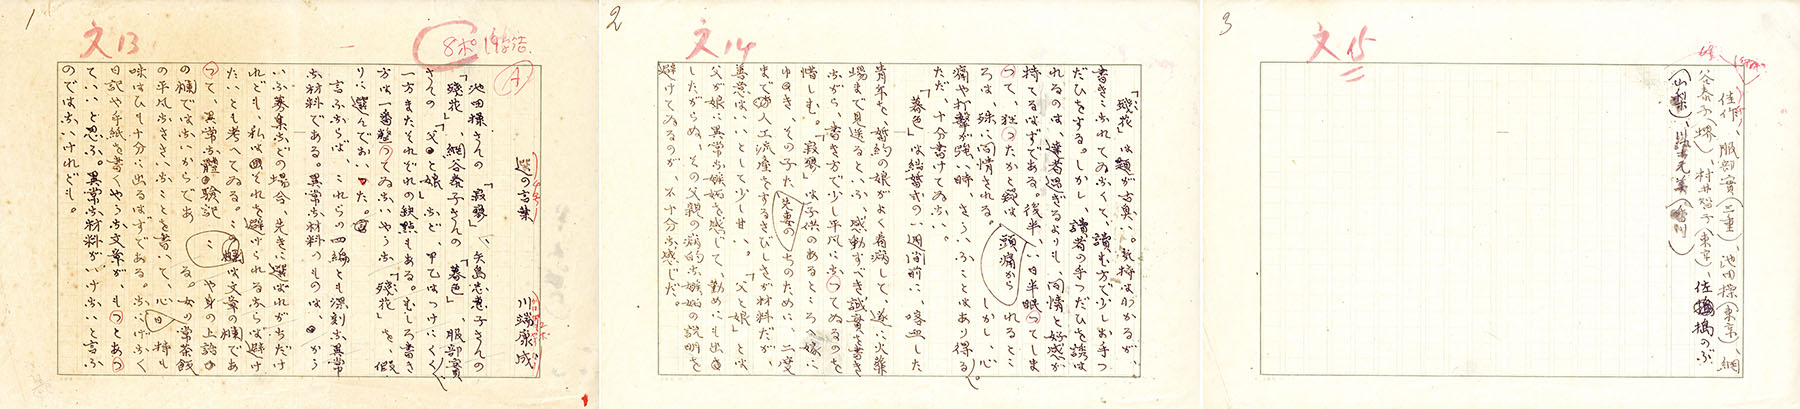 1
文13
8ポ19字詰
A
選の言葉
川端康成
池田操さんの「寂寥」、矢島志恵子さんの
「殘花」、網谷泰子さんの「暮色」、服部實
さんの「父と娘」など、甲乙はつけにくく、
一方またそれぞれの缺點もある。むしろ書き
方は一番整つてゐないやうな「殘花」を、假
りに選んでおいた。
言ふならば、これらの四編とも深刻な異常
な材料である。異常な材料のものは、かう
いふ募集などの場合、先きに選ばれがちだけ
れども、私はそれを避けられるならば避け
たいとも考へてゐる。この欄は文章の欄であ
つて、異常な體驗記や身の上話
の欄ではないからである。女の常茶飯
の平凡なささいなことを書いて、心持も
味はひも十分に出るはずである。なにげなく
日記や手紙を書くやうな文章が、もつとあつ
ていいと思ふ。異常な材料がいけないと言ふ
のではないけれども。
2
文14
「殘花」は題が古臭い。気持はわかるが、
書きなれてゐなくて、讀む方で少しお手つ
だひをする。しかし、讀者の手つだひを誘は
れるのは、達者過ぎるよりも、同情と好感が
持てるはずである。後半、い日半眠つてしま
つて、狂つたかと疑はれるとこ
ろは、殊に同情される。しかし、心
頭痛から
痛や打撃が強い時、さういふことはあり得る。
ただ、十分書けてゐない。
「暮色」は結婚式の一週間前に、喀血した
青年を、婚約の娘がよく看病して、遂に火葬
場まで見送るといふ、感動すべき誠實を書き
ながら、書き方で少し平凡になつてゐるのを
惜しむ。「寂寥」は子供のあるところへ嫁に
ゆき、その子たちのために、二度
先妻の
まで人工流産をするさびしさが材料だが、
善意はいいとして少し甘い。「父と娘」は
父が娘に異常な嫉妬を感じて、勤めにも出さ
したがらぬ、その父親の病的な嫉妬の説明を
避けてゐるのが、不十分な感じだ。
3
文15
佳作、服部實(三重)、池田操(東京)、網
谷泰子(堺)、村井智子(東京)、佐橋のぶ
(山梨)、